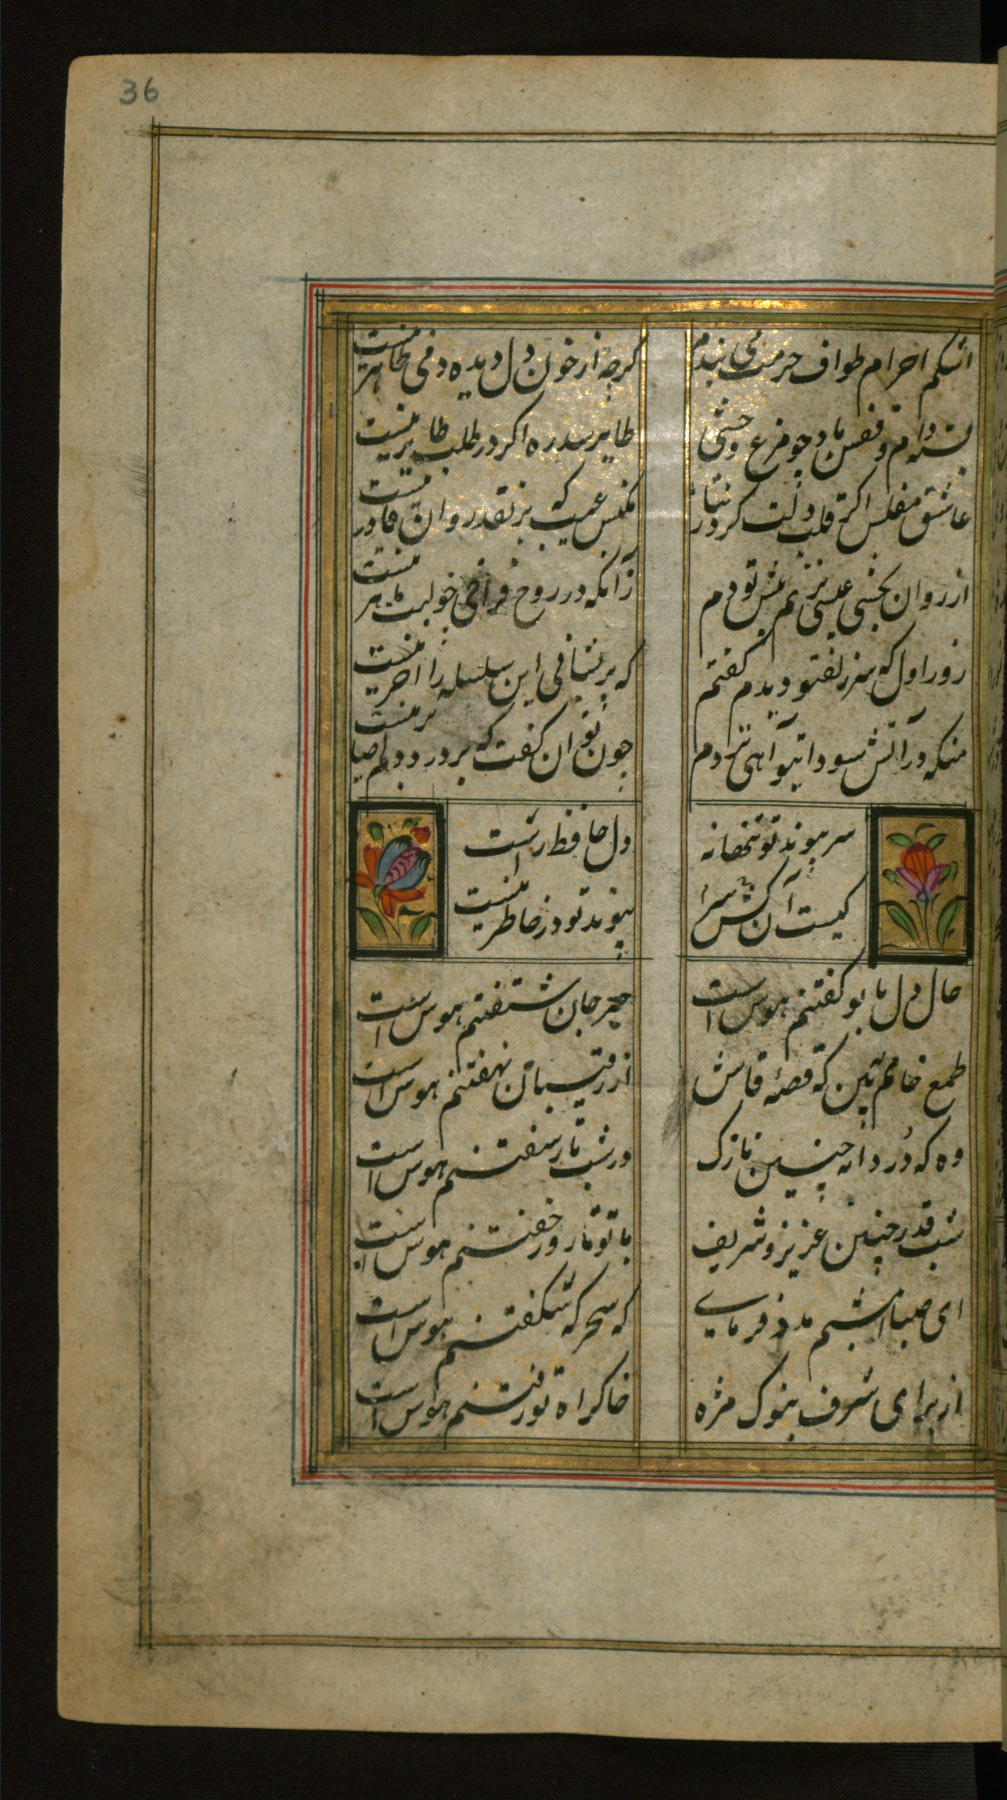 36
اشکم احرام طواف حرمت می بندد
گرچه از خون دل و دیده دمی طاهر نیست
بسته دام و قفس باد چو مرغ وحشی
طایر سدره اگر در طلبت طایر نیست
عاشق مفلس اگر قلب دلت کرد نثار
مکنش عیب که بر نقد روان قادر نیست
از روان بخشی عیسی نزنم پیش تو دم
زآنکه در روح فزائی چو لبت ماهر نیست
روز اول که سر زلف تو دیدم گفتم
که پریشانی این سلسله را آخر نیست
منکه در آتش سودای تو آهی نزدم
چون توان گفت که بر درد دلم صابر نیست
سر پیوند تو تنها نه
دل حافظ راست
کیست آن کش سر
پیوند تو در خاطر نیست
حال دل با تو گفتنم هوس است
خبر جان شنفتنم هوس است
طمع خام بین که قصه فاش
از رقیبان نهفتنم هوس است
وه که در دانه چنین نازک
در شب تار سفتنم هوس است
شب قدر چنین عزیز و شریف
با تو تا روز خفتنم هوس است
ای صبا امشبم مدد فرمای
که سحرگه شکفتنم هوس است
از برای شرف بنوک مژه
خاک راه تو رفتنم هوس است